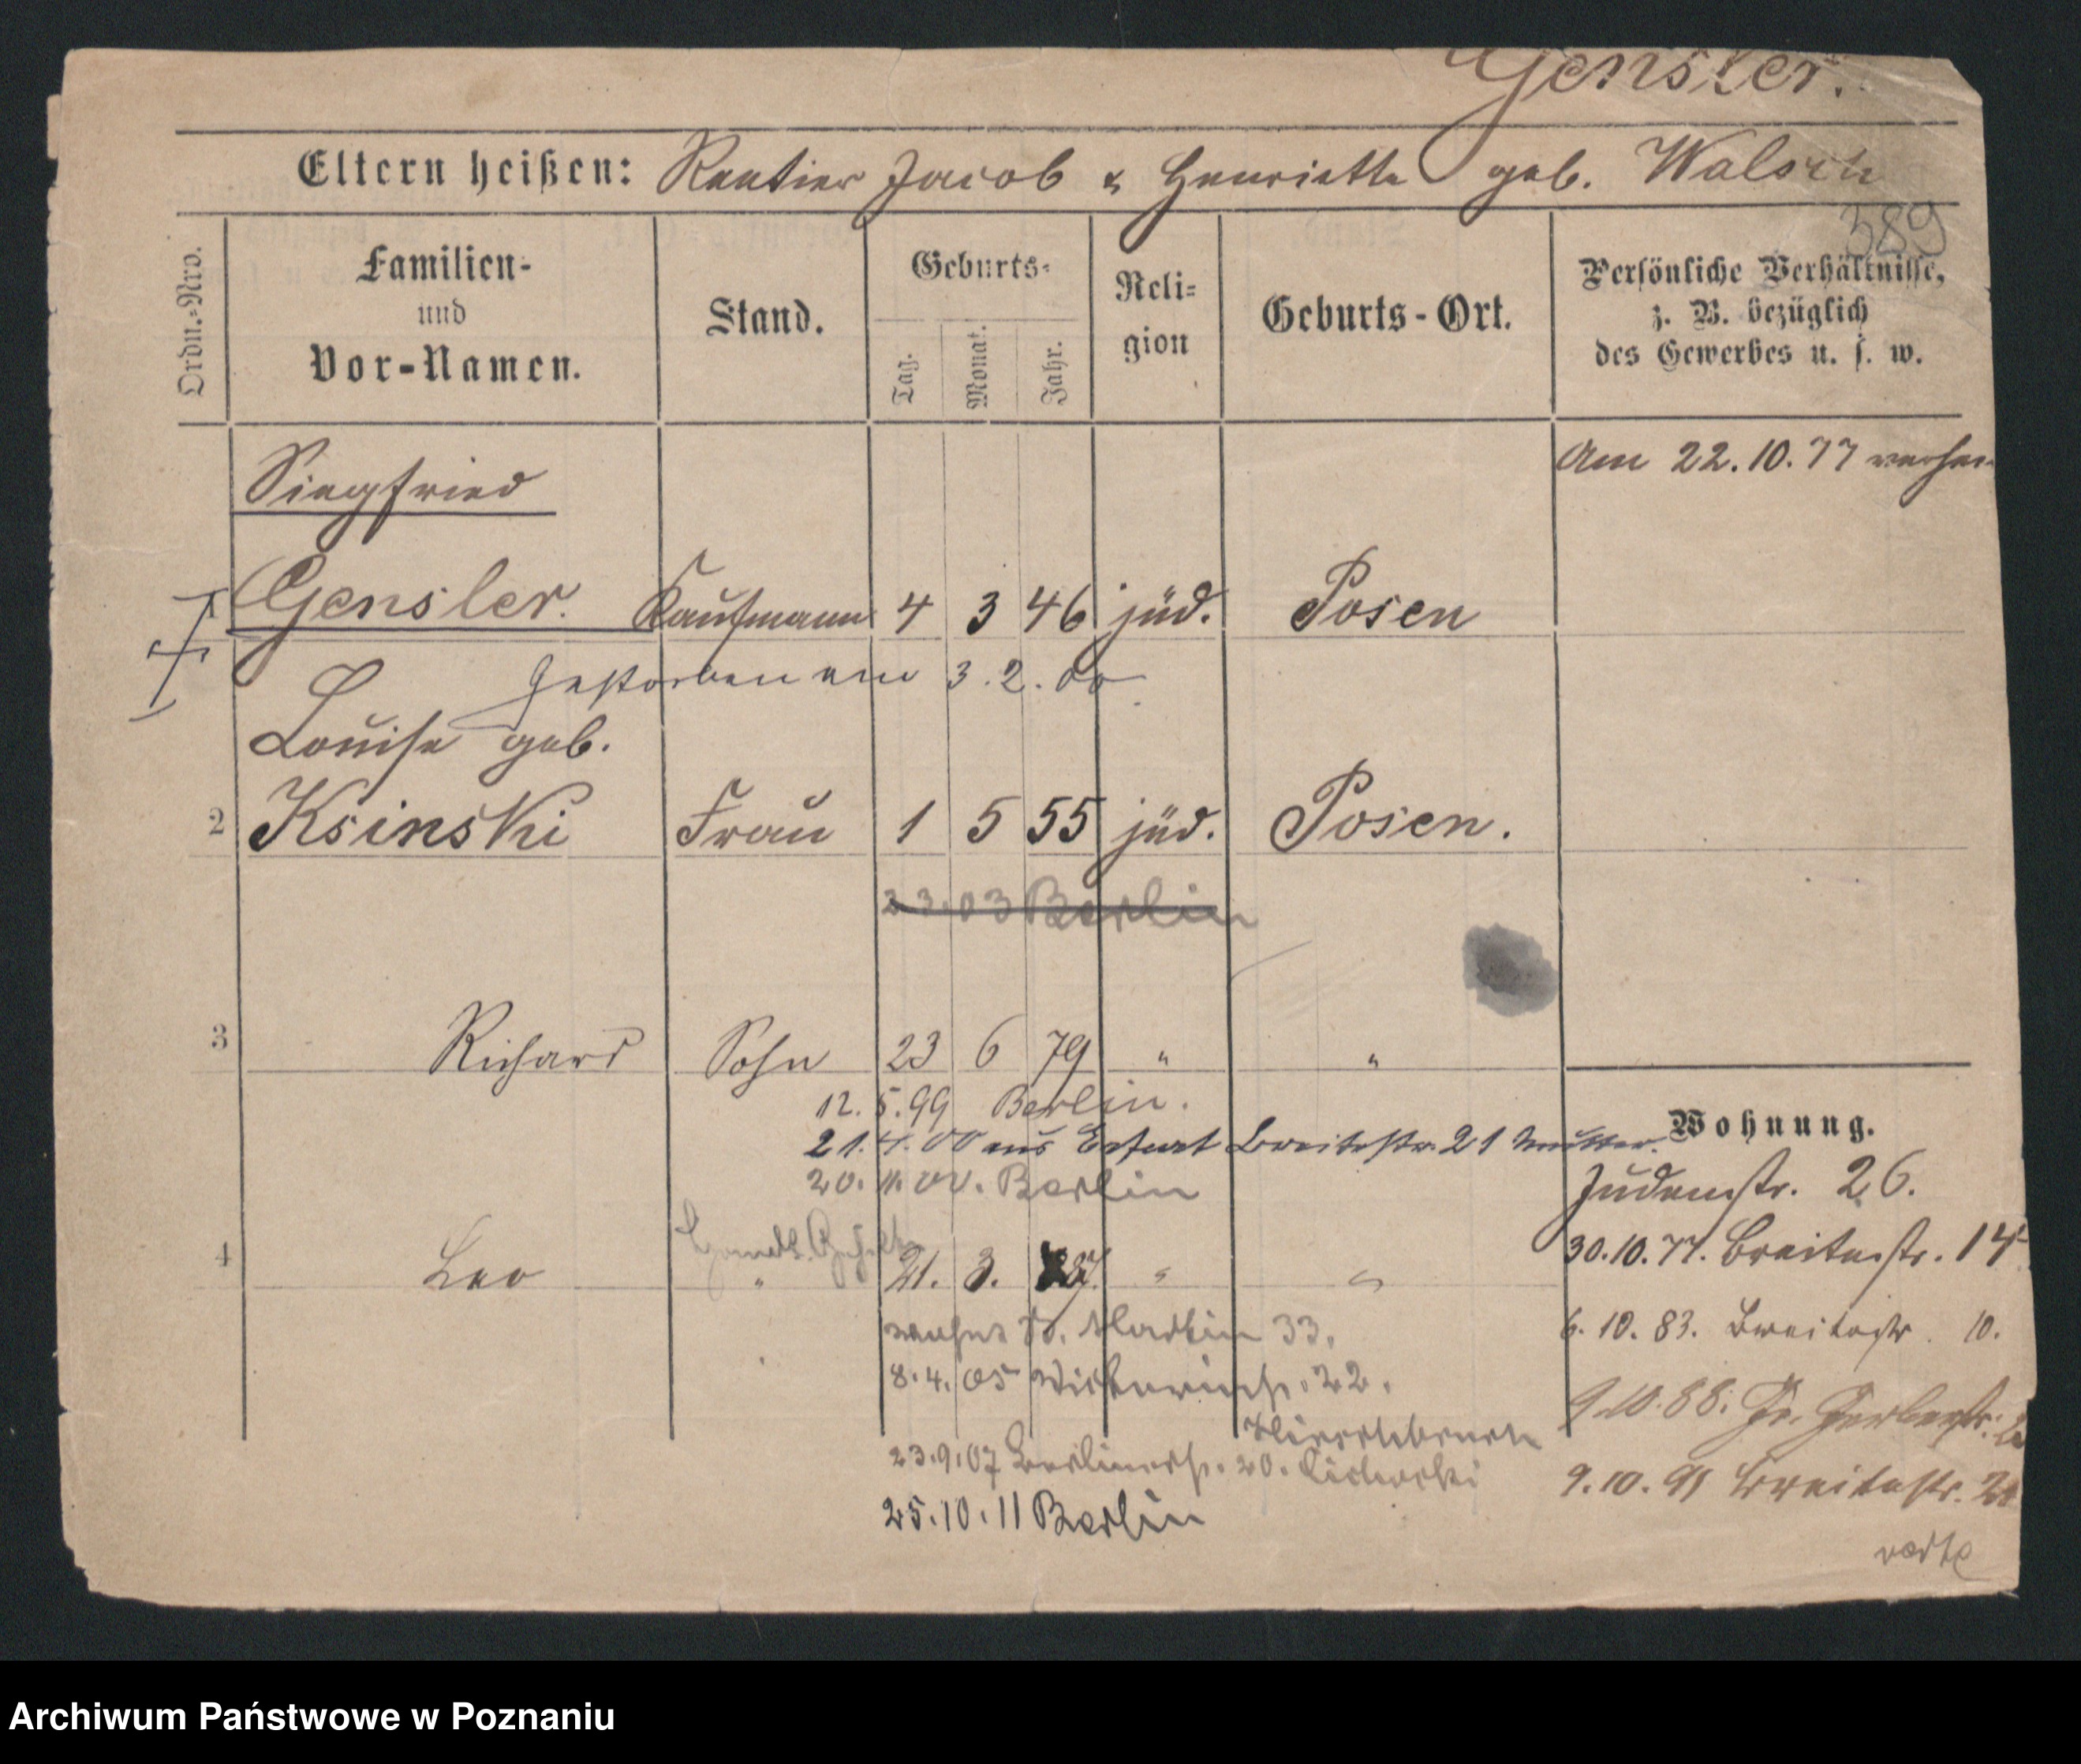 Gensler.
Eltern heißen: Rentier Jacob & Henriette geb. Walsch
389
Ordn.-Nro.
Familien-
und
Vor-Namen.
Stand.
Geburts-
Tag.
Monat.
Jahr.
Reli-
gion
Geburts-Ort.
Persönliche Verhältnisse,
z. B. bezüglich
des Gewerbes u. s. w.
Am 22.10.77
Siegfried
1 Gensler. Kaufmann 4 3 46 jüd. Posen
Gestorben am 3.2.00
Louise geb.
2 Ksinski Frau 1 5 55 jüd. Posen.
03 Berlin
3 Richard Sohn 23 6 79 " "
12.5.99 Berlin.
21.4.00 aus Erfurt Breitestr. 21 Mutter.
20.11.00. Berlin
4 Leo " 21. 3. 87. " "
St. Martin 33.
8.4.05 22.
23.9.07 Berlinerstr. 20.
25.10.11 Berlin
Wohnung.
Judenstr. 26.
30.10.77. Breitestr. 14
6.10.83. Breitestr. 10.
9.10.88. Gr. Gerberstr.
9.10.91 Breitestr. 21
verte
Archiwum Państwowe w Poznaniu